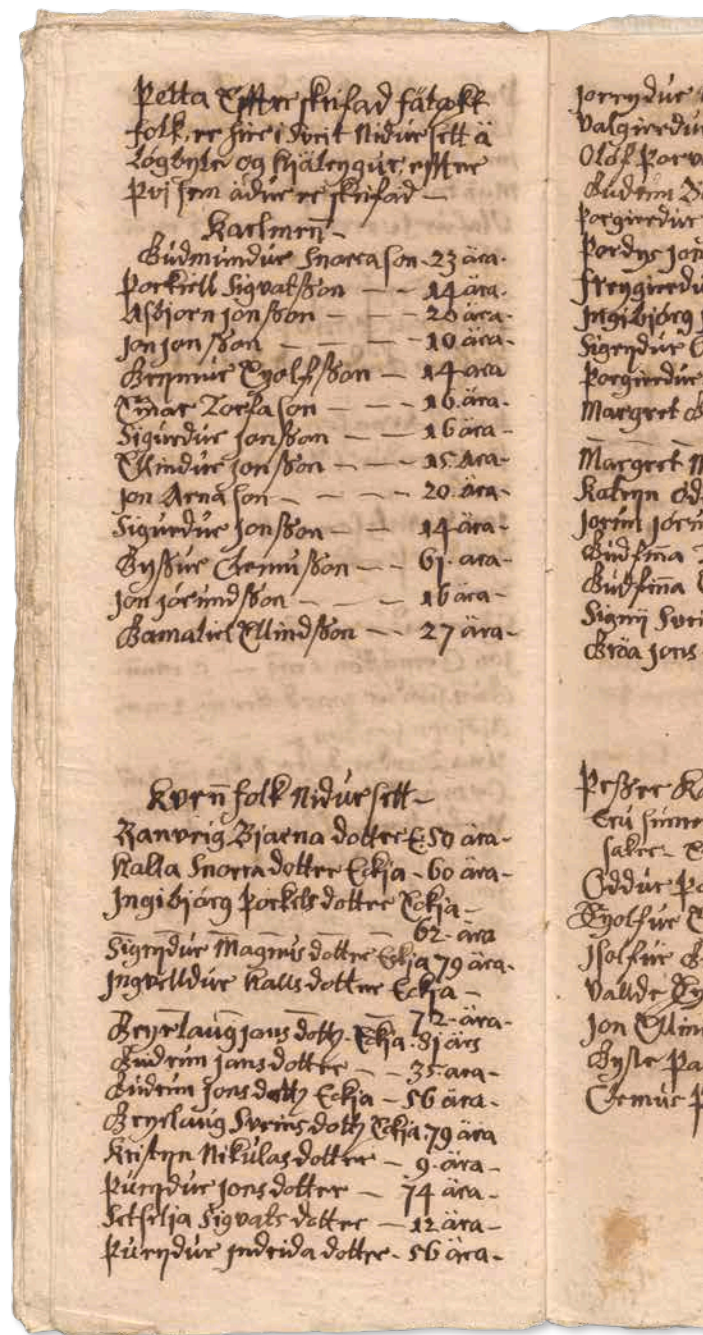 Þetta Epter skrifad fätækt
folk, er hier i sveit Nidur sett ä
Lögbyle og hiäleygur, epter
þvi sem ädur er skrifad –
Karlmeñ –
Gudmundur Snorrason - 23 ära.
Þorkiell Sigvatsson – – 14 ära.
Asbiorn jonsson – – – 20 ära.
jon jonsson – – – 10 ära.
Brynnur Eyolfsson – 14 ära
Einar Torfason – – – 16. ära.
Sigurdur jonsson – – 16 ära –
Ellindur jonsson – – – 15. ära.
jon Arnason – – – 20. ära –
Sigurdur jonsson – – 14 ära –
Gyssur Ormsson – – 61. ära –
jon jörundsson – – – 16 ära –
Gamaliel Ellindsson – – 27 ära –
Kveñfolk Nidursett –
Ranveig Biarna dotter E: 50 ära –
Halla Snorra dotter Eckja – 60 ära –
Ingibiörg Þorkels dotter Eckja –
62 – ära
Sigrydur Magnus dotter Eckja 79 ära.
Ingvelldur Halls dotter Eckja –
72 – ära –
Geyrlaug jons dotter. Eckja. 81 ärs
Gudrun jons dotter – – 35 ära –
Gudrun jons dotter Eckja – 56 ära.
Geyrlaug Sveins dotter Eckja 79 ära
Kristyn Nikulas dotter – 9. ära –
Þurydur jons dotter – 74 ära –
Setselja Sigvats dotter – 12 ära –
Þurydur jndrida dotter. 56 ära.
jorrydur
Valgierdur
Olöf Þorv
Gudrun
Þorgierdur
Þordys jons
Freygierdu
Ingibiörg
Sigrydur
Þorgierdur
Margret
Margret
Katryn Od
Jorun jöru
Gudfiña
Gudfiña
Signy Svei
Gröa jons
Þesser
Eru
saker –
Oddur Þo
Eyolfur
Isolfur
Vallde Ey
Jon Ellin
Gysle Pa
Ormur Þ